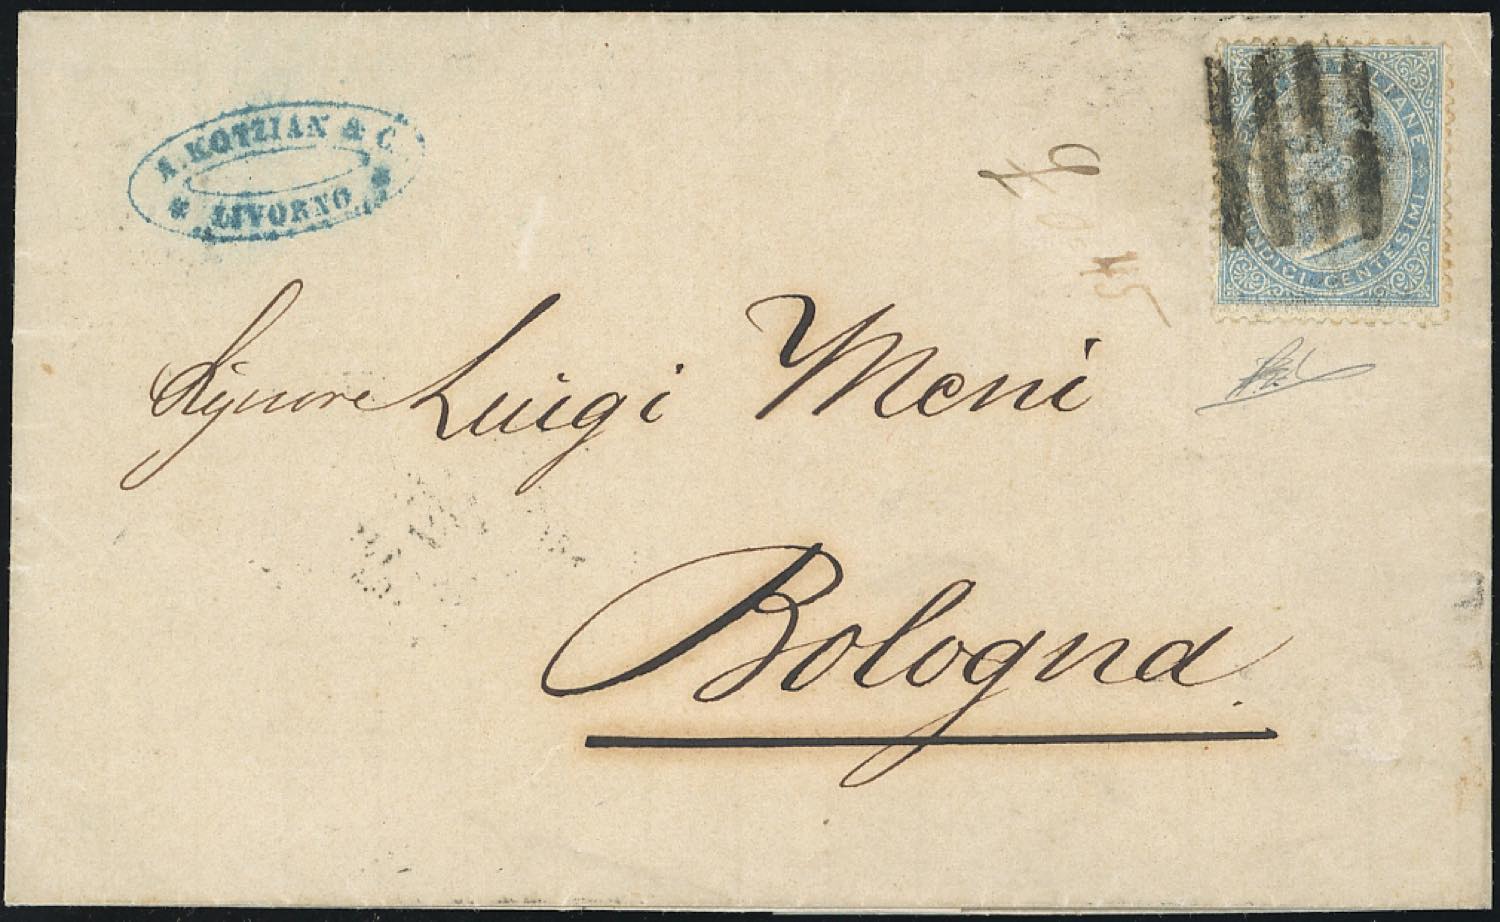 A. KOTZIAN & C.
LIVORNO
QUINDICI CENTESIMI
45
Signore Luigi Meni
Bologna.